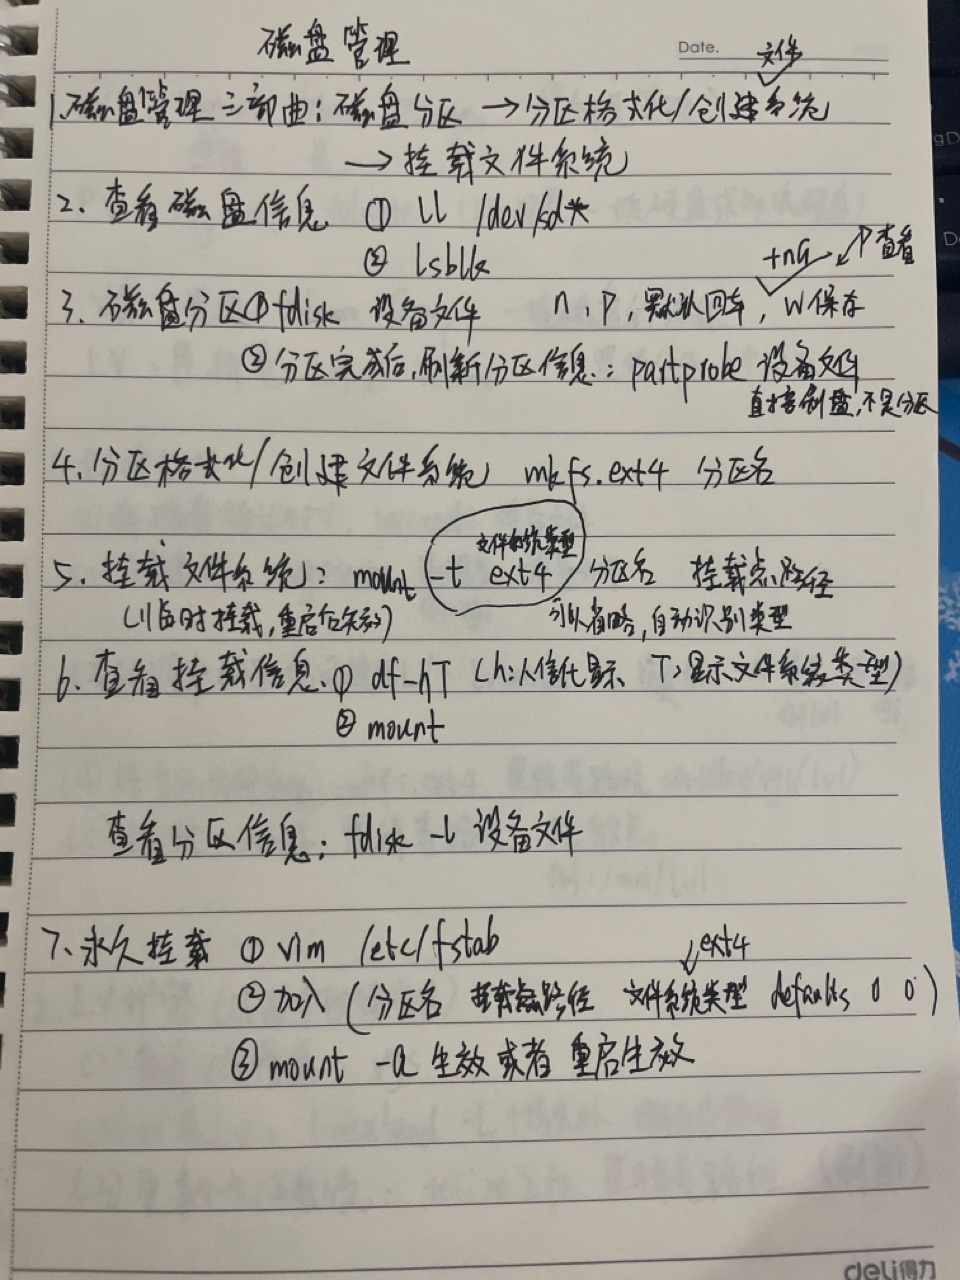 磁盘管理
Date.
文件
1.磁盘管理三部曲:磁盘分区 →分区格式化/创建系统
→挂载文件系统
2.查看磁盘信息 ① ll /dev/sd*
② lsblk
+nG 查看
3.磁盘分区① fdisk 设备文件 n,p,默认回车,w保存
②分区完成后,刷新分区信息:partprobe 设备文件
直接刷盘,不是分区
4.分区格式化/创建文件系统 mkfs.ext4 分区名
文件系统类型
5.挂载文件系统:mount -t ext4 分区名 挂载点路径
(临时挂载,重启后失效) 可以省略,自动识别类型
6.查看挂载信息.① df-hT (h:人信化显示 T:显示文件系统类型)
② mount
查看分区信息:fdisk -l 设备文件
7、永久挂载 ① vim /etc/fstab
ext4
②加入(分区名 挂载点路径 文件系统类型 defaults 0 0)
③ mount -a 生效或者 重启生效
deli得力